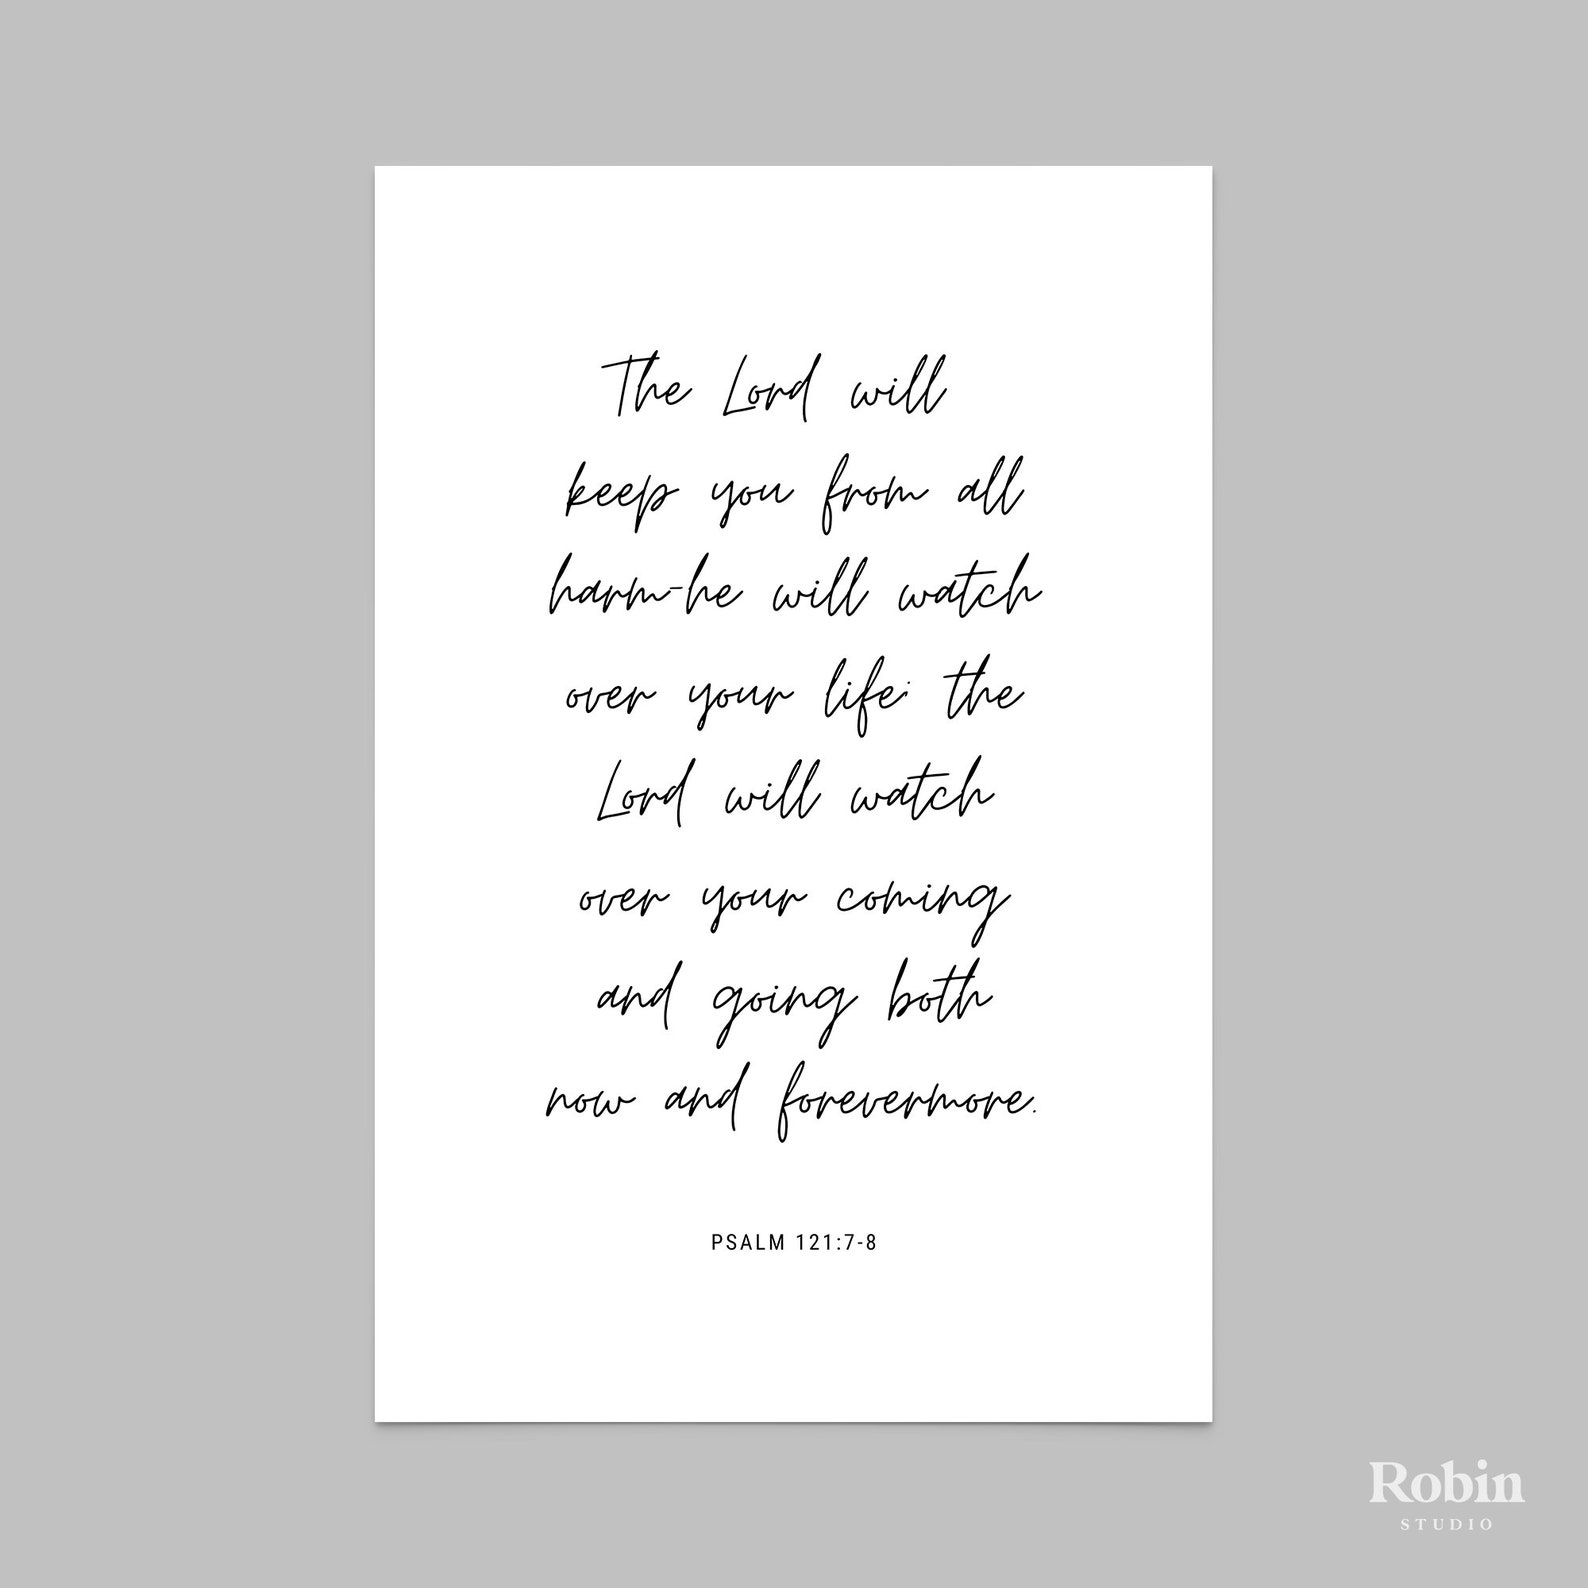 The Lord will
keep you from all
harm-he will watch
over your life; the
Lord will watch
over your coming
and going both
now and forevermore.
PSALM 121:7-8
Robin
STUDIO